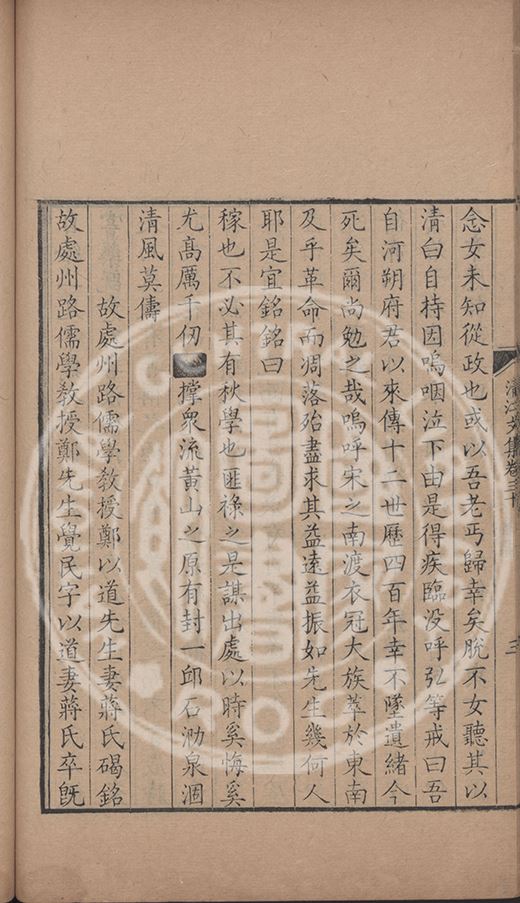 念女未知從政也或以吾老丐歸幸矣脫不女聽其以
清白自持因嗚咽泣下由是得疾臨没呼弘等戒曰吾
自河朔府君以來傳十二世歷四百年幸不墜遺緒今
死矣爾尚勉之哉嗚呼宋之南渡衣冠大族萃於東南
及乎革命而凋落殆盡求其益遠益振如先生幾何人
耶是宜銘銘曰
稼也不必其有秋學也匪祿之是謀出處以時奚悔奚
尤髙厲千仞撑衆流黃山之原有封一邱石泐泉涸
清風莫儔
故處州路儒學敎授鄭以道先生妻蔣氏碣銘
故處州路儒學敎授鄭先生覺民字以道妻蔣氏卒旣
文集卷三十
三